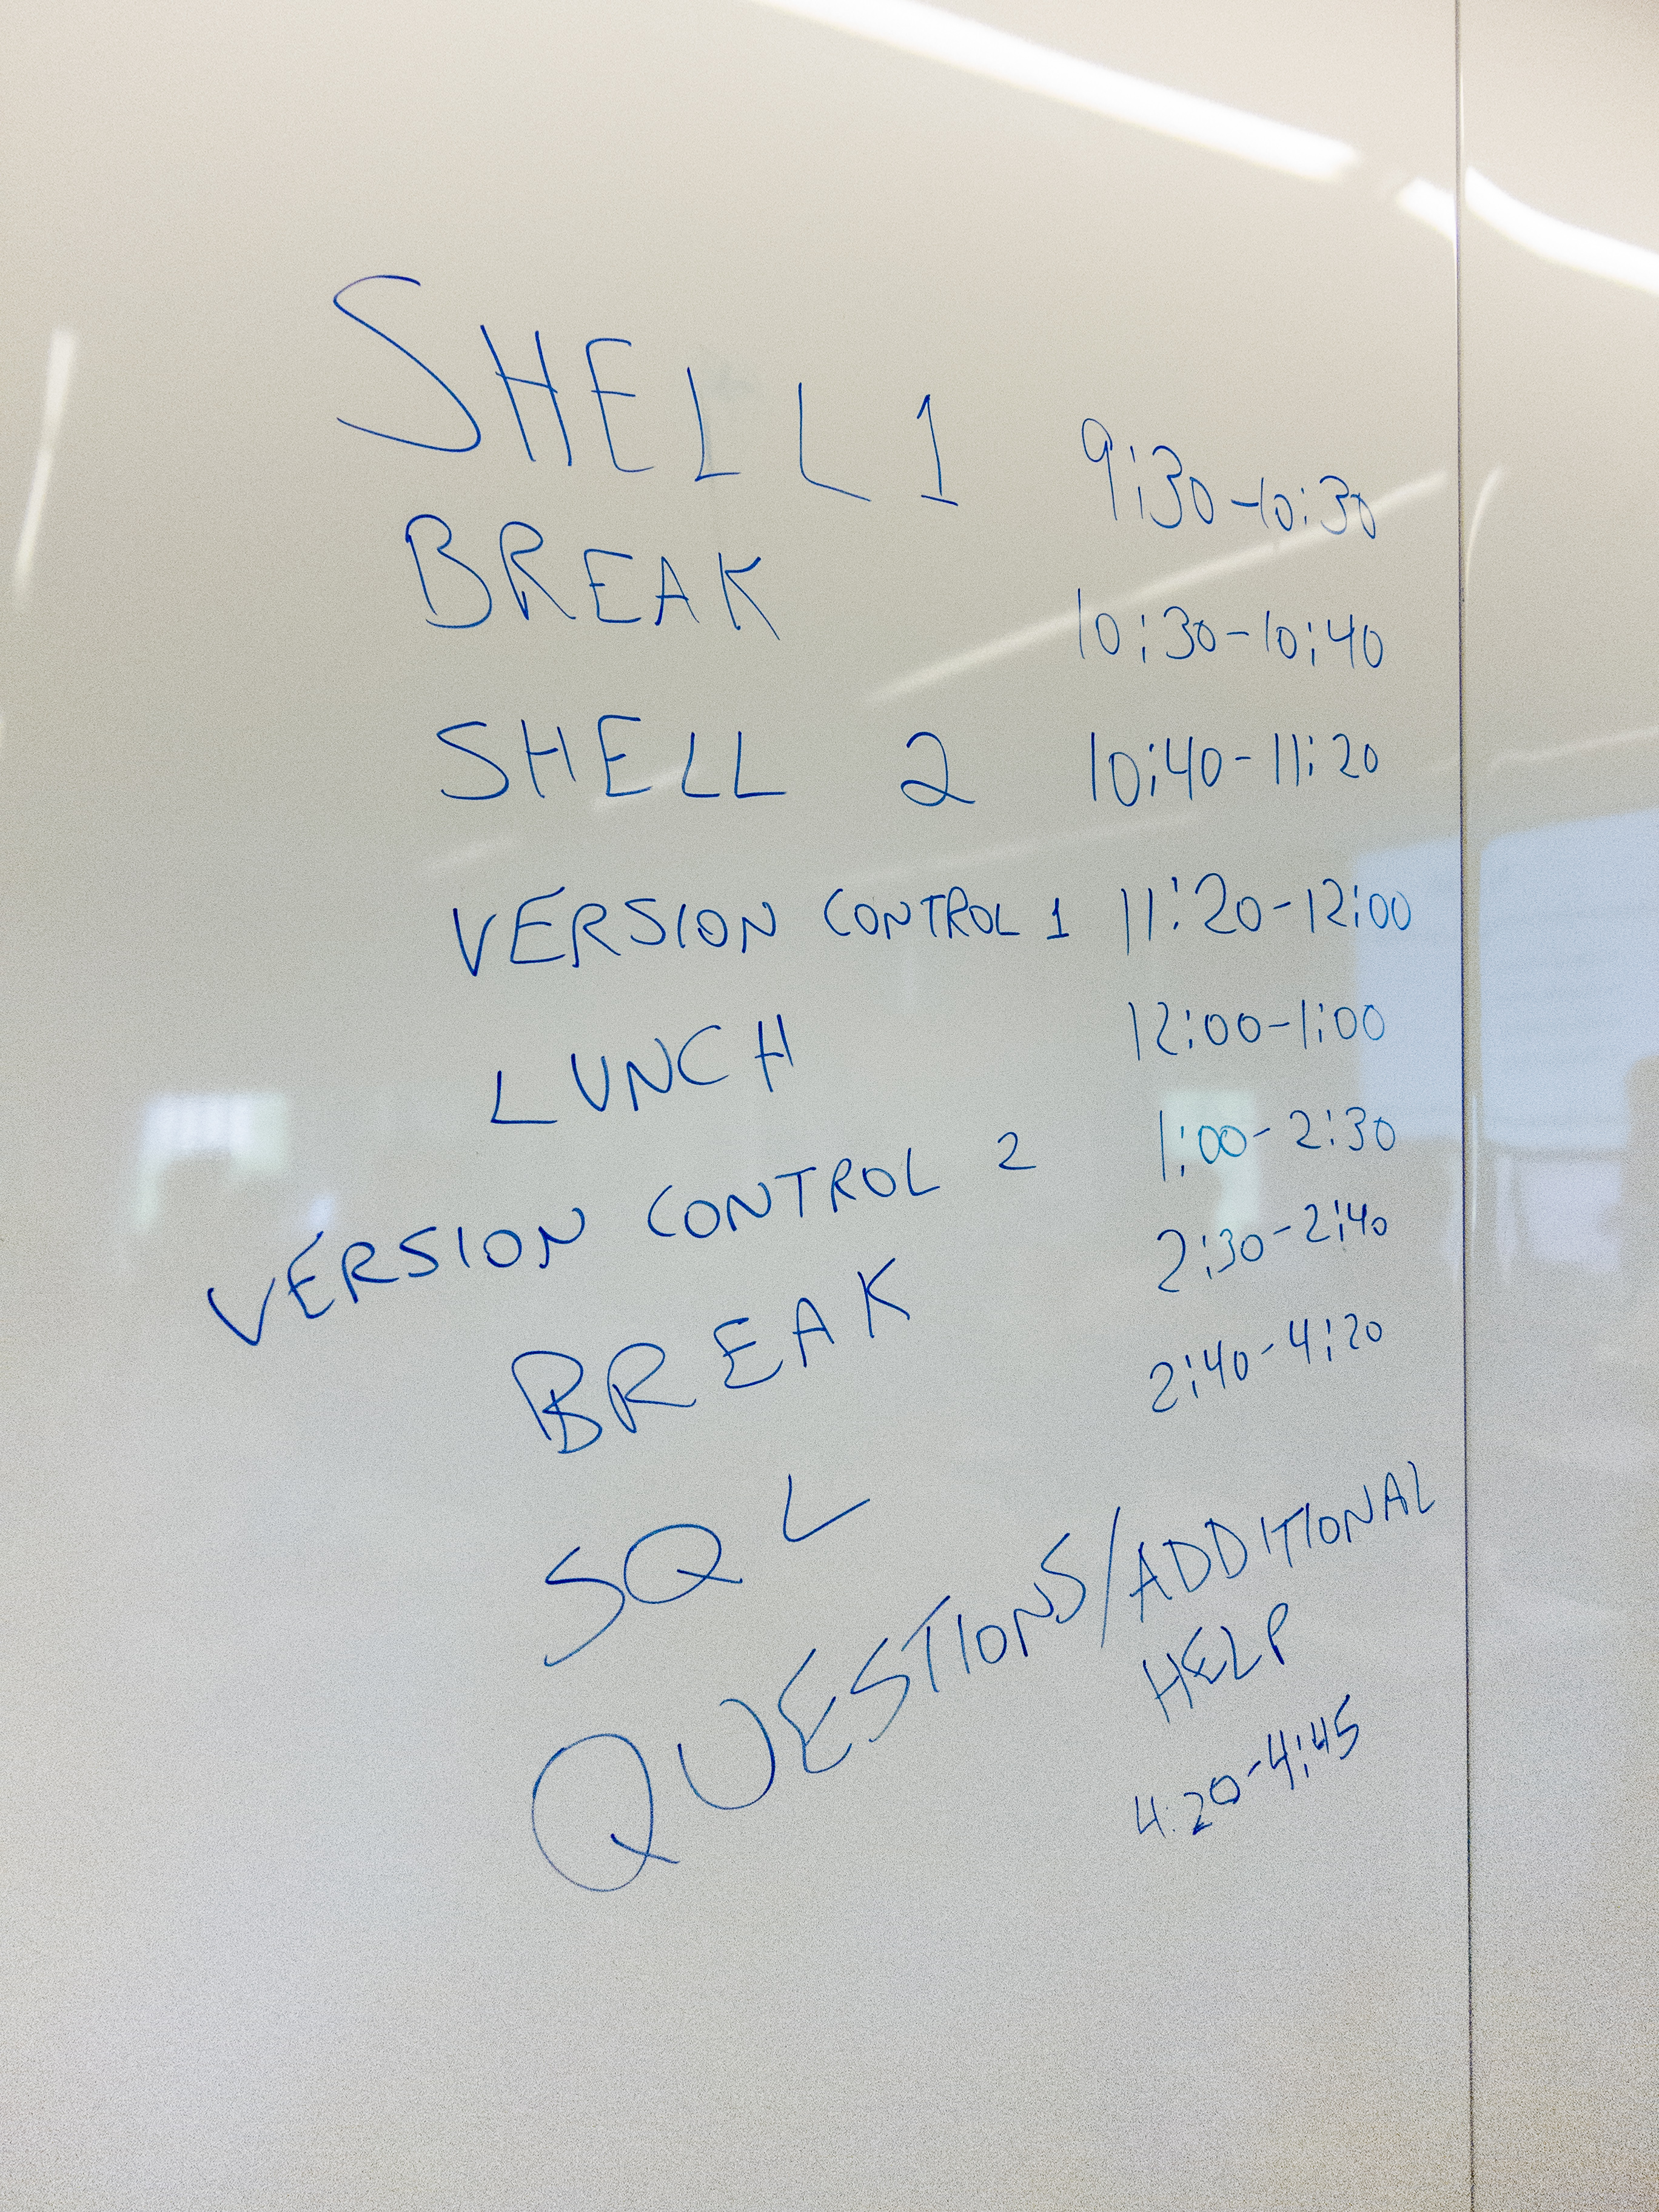 SHELL 1 9:30-10:30
BREAK 10:30-10:40
SHELL 2 10:40-11:20
VERSION CONTROL 1 11:20-12:00
LUNCH 12:00-1:00
VERSION CONTROL 2 1:00-2:30
BREAK 2:30-2:40
SQL 2:40-4:20
QUESTIONS/ADDITIONAL
HELP
4:20-4:45